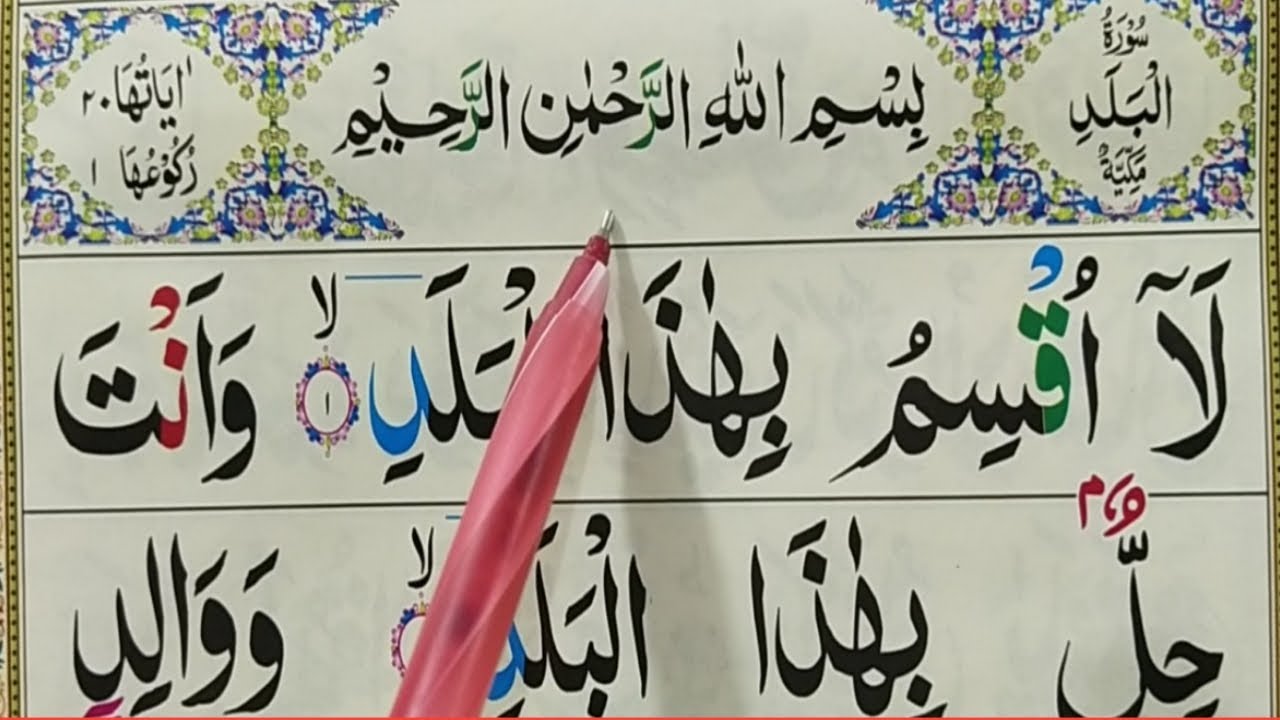 سُوْرَةُ
الْبَلَدِ
مَكِّيَّةٌ
بِسْمِ اللّٰهِ الرَّحْمٰنِ الرَّحِيْمِ
اٰيَاتُهَا ٢٠
رُكُوْعُهَا ١
لَاۤ اُقْسِمُ بِهٰذَا الْبَلَدِ ۙ ١ وَاَنْتَ
حِلٌّۢ بِهٰذَا الْبَلَدِ ۙ وَوَالِدٍ